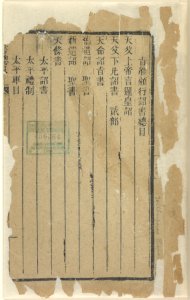 旨准頒行詔書總目
天父上帝言題皇詔
天父下凡詔書
天命詔旨書
舊遺詔 聖書
新遺詔 聖書
天條書
太平詔書
太平禮制
太平軍目